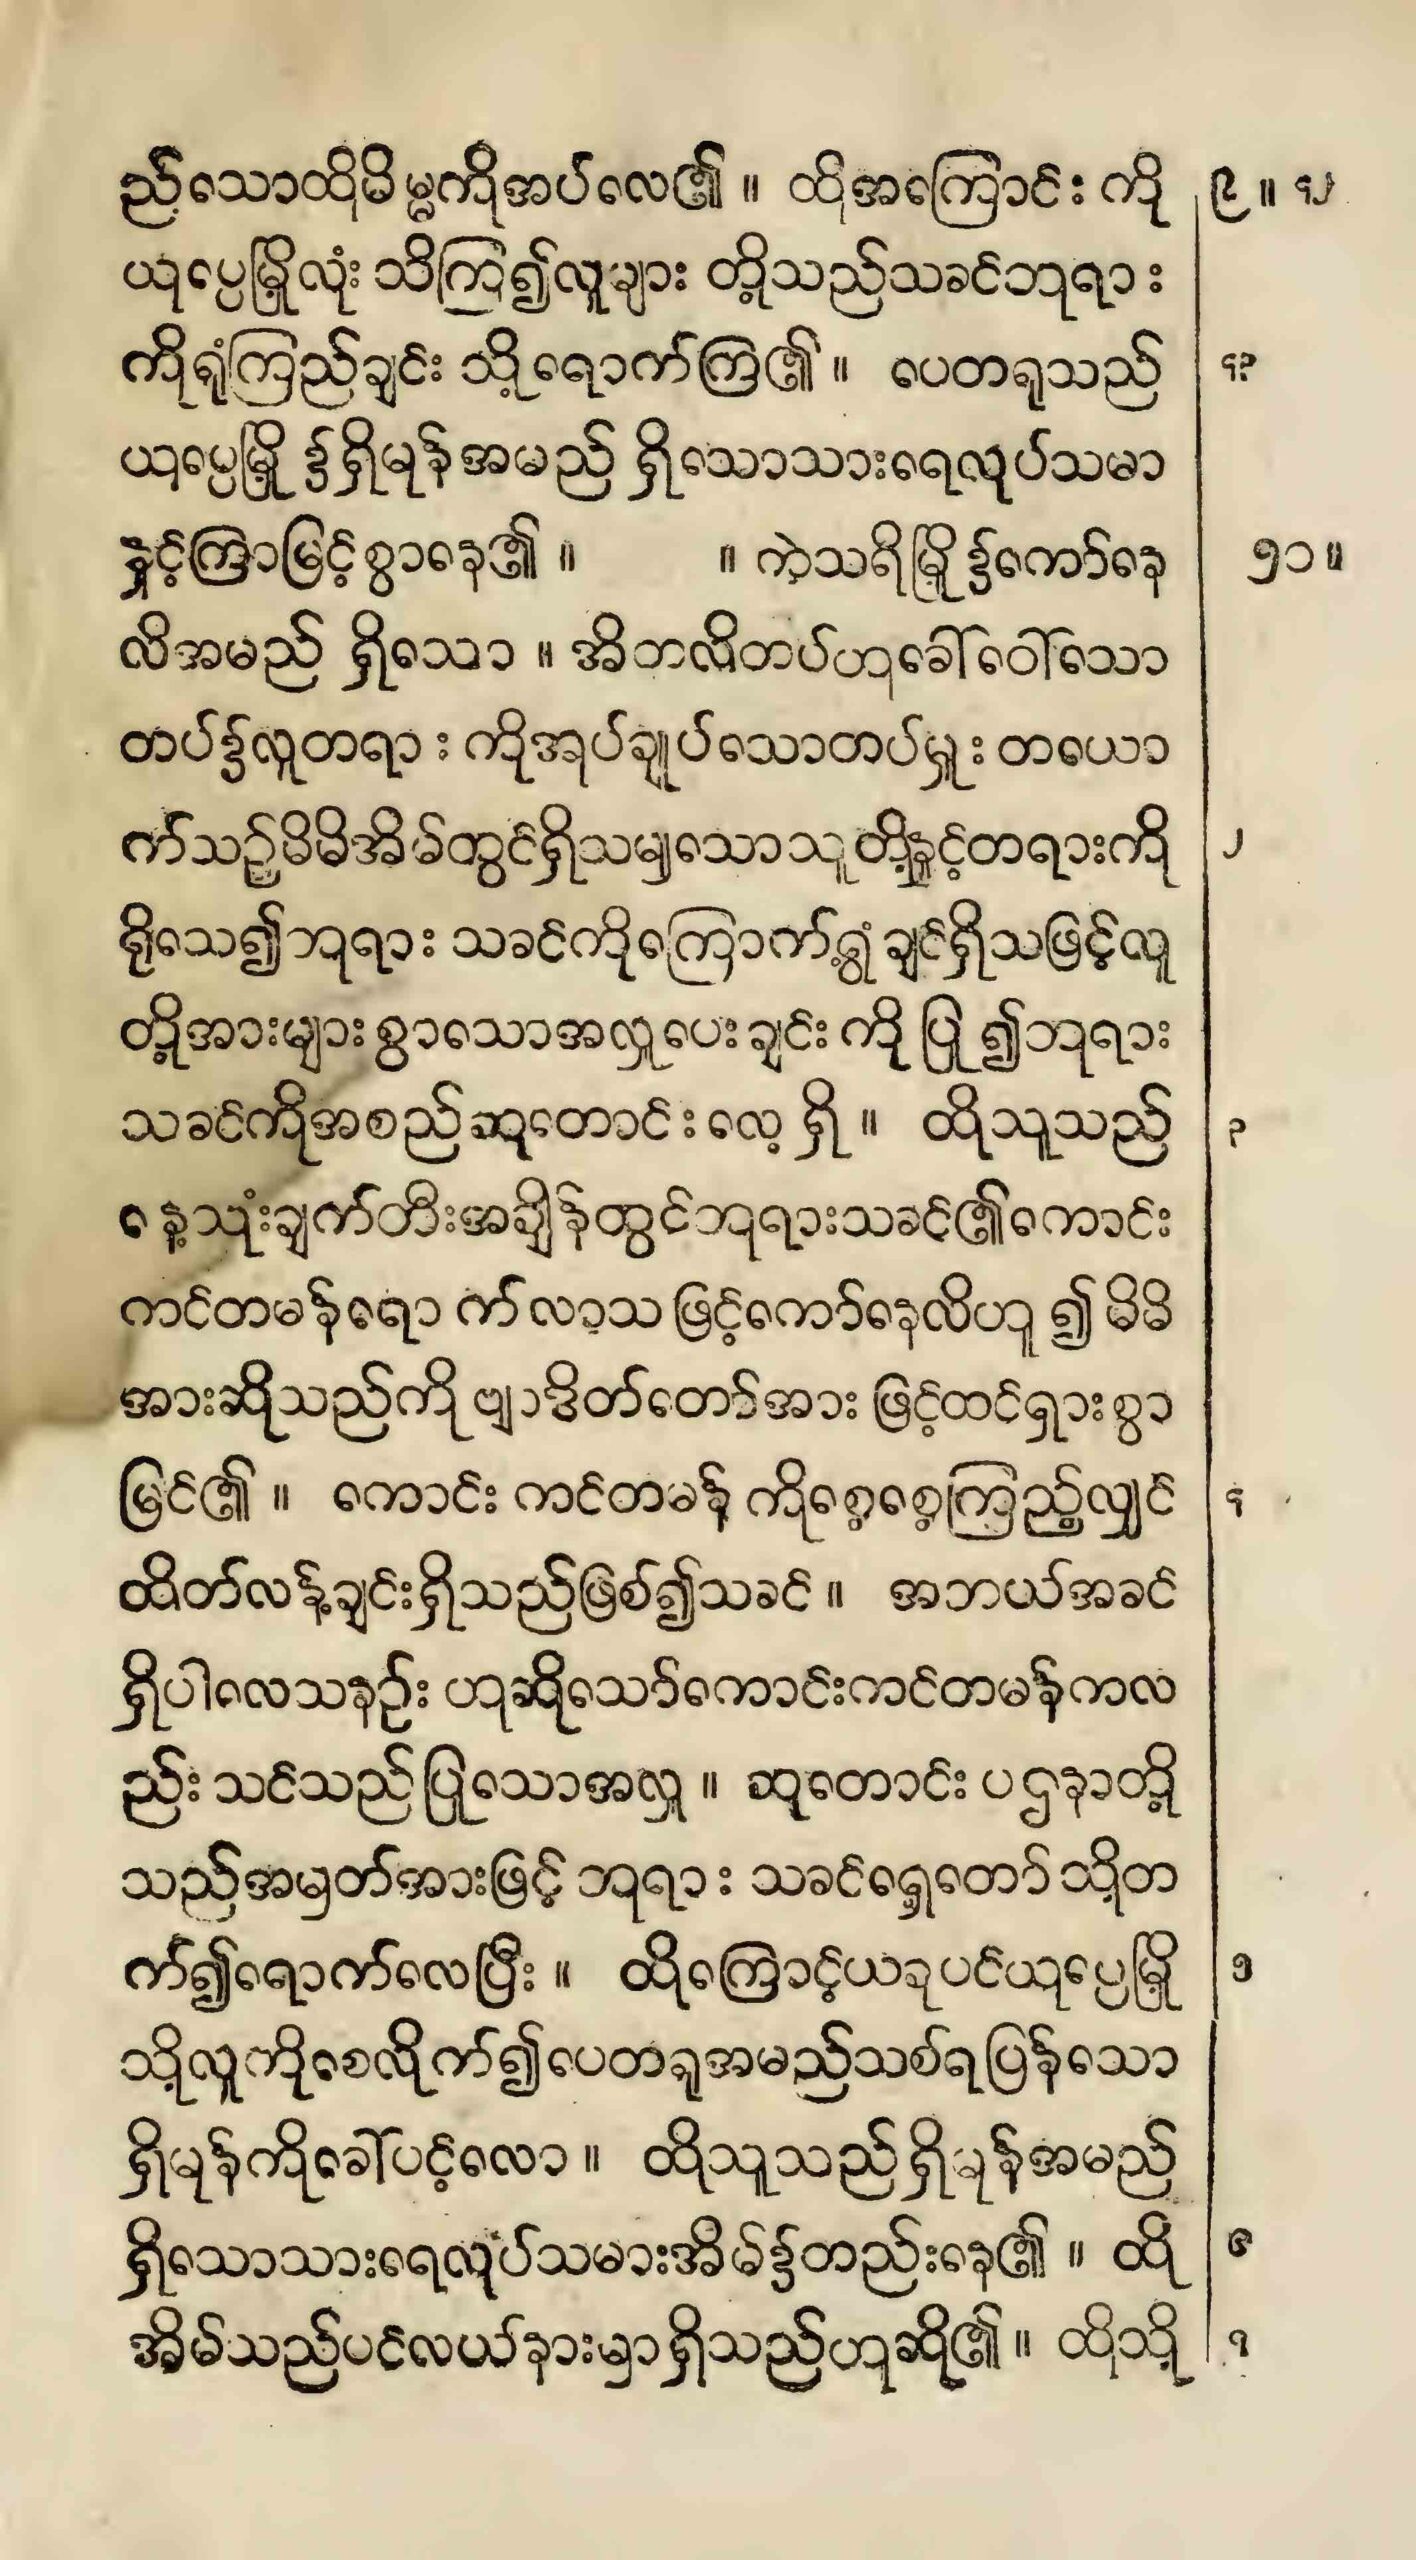 ည်သောထိုမိမ္မကိုအပ်လေ၏ ။ ထိုအကြောင်းကို ၉ ။ ၄၂
ယုပ္ပေမြို့လုံးသိကြ၍လူများတို့သည်သခင်ဘုရား
ကိုရုံကြည်ချင်းသို့ရောက်ကြ၏ ။ ပေတရုသည် ၄၃
ယုပ္ပေမြို့၌ရှိမုန်အမည်ရှိသောသားရေလုပ်သမာ
နှင့်ကြာမြင့်စွာနေ၏ ။ ။ ကဲသရိမြို့၌ကော်နေ ၅၁ ။
လိအမည်ရှိသော ။ အိတလိတပ်ဟုခေါ်ဝေါ်သော
တပ်၌လူတရားကိုအုပ်ချုပ်သောတပ်မှူးတယော
က်သည်မိမိအိမ်တွင်ရှိသမျှသောသူတို့နှင့်တရားကို ၂
ရိုသေ၍ဘုရားသခင်ကိုကြောက်ရွံ့ချင်ရှိသဖြင့်လူ
တို့အားများစွာသောအလှူပေးချင်းကိုပြု၍ဘုရား
သခင်ကိုအစည်ဆုတောင်းလေ့ရှိ ။ ထိုသူသည် ၃
နေ့သုံးချက်တီးအချိန်တွင်ဘုရားသခင်၏ကောင်း
ကင်တမန်ရောက်လာသဖြင့်ကော်နေလိဟူ၍မိမိ
အားဆိုသည်ကိုဗျာဒိတ်တော်အားဖြင့်ထင်ရှားစွာ
မြင်၏ ။ ကောင်းကင်တမန်ကိုစေ့စေ့ကြည့်လျှင် ၄
ထိတ်လန့်ချင်းရှိသည်ဖြစ်၍သခင် ။ အဘယ်အခင်
ရှိပါလေသနဉ်းဟုဆိုသော်ကောင်းကင်တမန်ကလ
ည်းသင်သည်ပြုသောအလှူ ။ ဆုတောင်းပဌနာတို့
သည်အမှတ်အားဖြင့်ဘုရားသခင်ရှေ့တော်သို့တ
က်၍ရောက်လေပြီး ။ ထိုကြောင့်ယခုပင်ယုပ္ပေမြို့ ၅
သို့လူကိုစေလိုက်၍ပေတရုအမည်သစ်ရပြန်သော
ရှိမုန်ကိုခေါ်ပင့်လော ။ ထိုသူသည်ရှိမုန်အမည်
ရှိသောသားရေလုပ်သမားအိမ်၌တည်းနေ၏ ။ ထို ၆
အိမ်သည်ပင်လယ်နားမှာရှိသည်ဟုဆို၏ ။ ထိုသို့ ၇